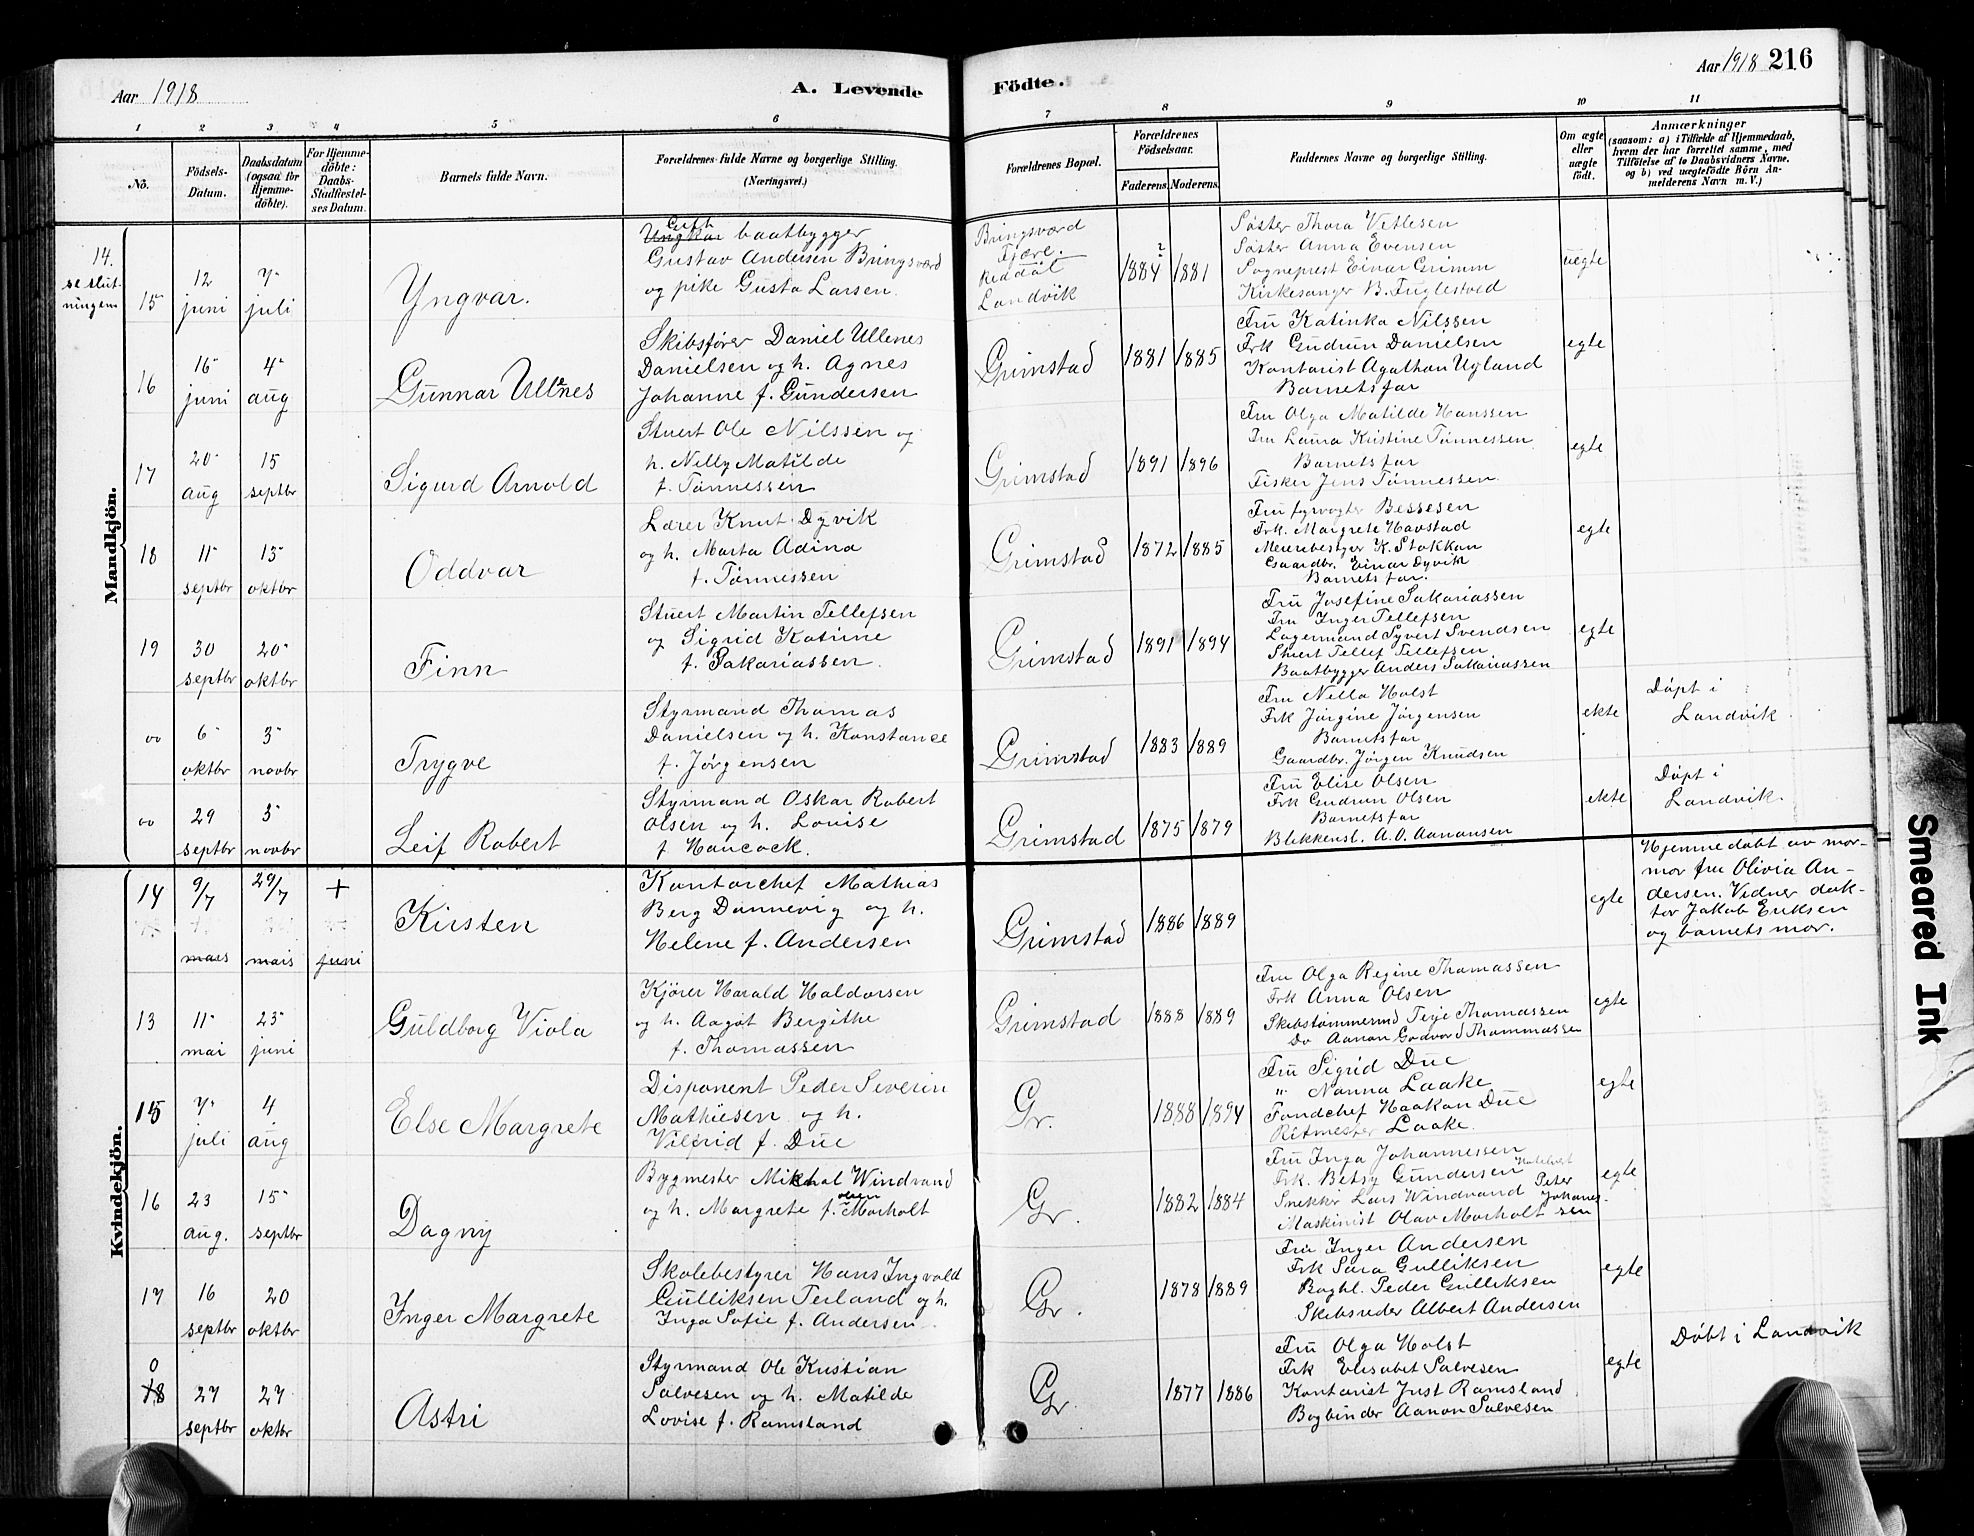 Aar 1918
A. Levende
Födte.
Aar 1918 216
1 2 3 4 5 6 7 8 9 10 11
No.
Födsels-
Datum.
Daabsdatum
(ogsaa for
Hjemme-
döbte).
For Hjemme-
döbte:
Daabs-
Stadfæstel-
ses Datum.
Barnets fulde Navn.
Forældrenes fulde Navne og borgerlige Stilling.
(Næringsvei.)
Forældrenes Bopæl.
Forældrenes
Födselsaar.
Faderens. Moderens.
Faddernes Navne og borgerlige Stilling.
Om ægte
eller
uægte
födt.
Anmærkninger
(saasom: a) i Tilfælde af Hjemmedaab,
hvem der har forrettet samme, med
Tilföielse af to Daabsvidners Navne,
og b) ved uægtefödte Börn An-
melderens Navn m. V.)
Mandkjön.
14.
se slut-
ningen
15
12
juni
7
juli
Yngvar.
Gift
Ungkar baatbygger
Gustav Andersen Bringsværd
og pike Gusta Larsen.
Bringsværd
Fjære.
Reddal
Landvik
1884 2 1881
Søster Thora Vetlesen
Søster Anna Evensen
Sogneprest Einar Grimm
Kirkesanger B. Fuglestved
uegte
16
16
juni
4
aug
Gunnar Ullenes
Skibsfører Daniel Ullenes
Danielsen og h. Agnes
Johanne f. Gundersen
Grimstad
1881 1885
Fru Katinka Nilssen
Frk Gudrun Danielsen
Kontorist Agathon Ugland
Barnets far
egte
17
20
aug
15
septbr
Sigurd Arnold
Stuert Ole Nilssen og
h. Nelly Matilde
f. Tønnessen
Grimstad
1891 1896
Fru Olga Matilde Hanssen
Fru Laura Kristine Tønnessen
Barnets far
Fisker Jens Tønnessen.
egte
18
11
septbr
13
oktbr
Oddvar
Lærer Knut Dyvik
og h. Marta Adina
f. Tønnessen
Grimstad
1872 1885
Fru fyrvogter Bessesen
Frk. Margrete Havstad
Meieribestyer K. Stokkan
Gaardbr. Einar Dyvik
Barnets far.
egte
19
30
septbr
20
oktbr
Finn
Stuert Martin Tellefsen
og Sigrid Katinne
f. Sakariassen.
Grimstad
1891 1894
Fru Josefine Sakariassen
Fru Inger Tellefsen
Lagermand Syvert Svendsen
Stuert Tellef Tellefsen
Baatbygger Anders Sakariassen
egte
oo
6
oktbr
3
novbr
Trygve
Styrmand Thomas
Danielsen og h. Konstance
f. Jørgensen
Grimstad
1883 1889
Fru Nella Holst
Frk Jørgine Jørgensen
Barnets far
Gaardbr. Jørgen Knudsen
ekte
Døpt i
Landvik
oo
29
septbr
3
novbr
Leif Robert
Styrmand Oskar Robert
Olsen og h. Louise
f Hancock.
Grimstad
1875 1879
Fru Elise Olsen
Frk Gudrun Olsen
Barnets far
Blikkensl. A. O. Aanonsen
ekte
Døpt i
Landvik.
Kvindekjön.
14
9/7
mars
29/7
mars
+
juni
Kirsten
Kontorchef Mathias
Berg Dannevig og h.
Helene f. Andersen
Grimstad
1886 1889
egte
Hjemmedøbt av mor-
mor fru Olivia An-
dersen. Vidner dok-
tor Jakob Eriksen
og barnets mor.
13
11
mai
23
juni
Guldborg Viola
Kjører Harald Haldorsen
og h. Aagot Bergithe
f. Thomassen
Grimstad
1888 1889
Fru Olga Regine Thomassen
Frk Anna Olsen
Skibstømmermd Terje Thomassen
Do Aanon Godvord Thommassen
egte
15
7
juli
4
aug
Else Margrete
Disponent Peder Severin
Mathiesen og h.
Vilfrid f. Due
Gr.
1888 1894
Fru Sigrid Due
" Nanna Laake
Fondchef Haakon Due
Ritmester Laake.
egte
16
23
aug.
15
septbr
Dagny
Bygmester Mikkal Windvand
og h. Margrete f. olsen Morholt
Gr.
1882 1884
Fru Inga Johannessen
Frk. Betsy Gundersen
Snekker Lars Windvand Peter Johannes-
Maskinist Olav Morholt sen
egte
17
16
septbr
20
oktbr
Inger Margrete
Skolebestyrer Hans Ingvald
Gulliksen Terland og h.
Inga Sofie f. Andersen
Gr.
1878 1889
Fru Inger Andersen
Frk Sara Gulliksen
Boghl. Peder Gulliksen
Skibsreder Albert Andersen
egte
0
18
27
septbr
27
oktbr
Astri
Styrmand Ole Kristian
Salvesen og h. Matilde
Lovise f. Ramsland
Gr.
1877 1886
Fru Olga Holst
Frk Elisabet Salvesen
Kontorist Just Ramsland
Bogbinder Aanon Salvesen
egte
Døbt i Landvik
Smeared Ink